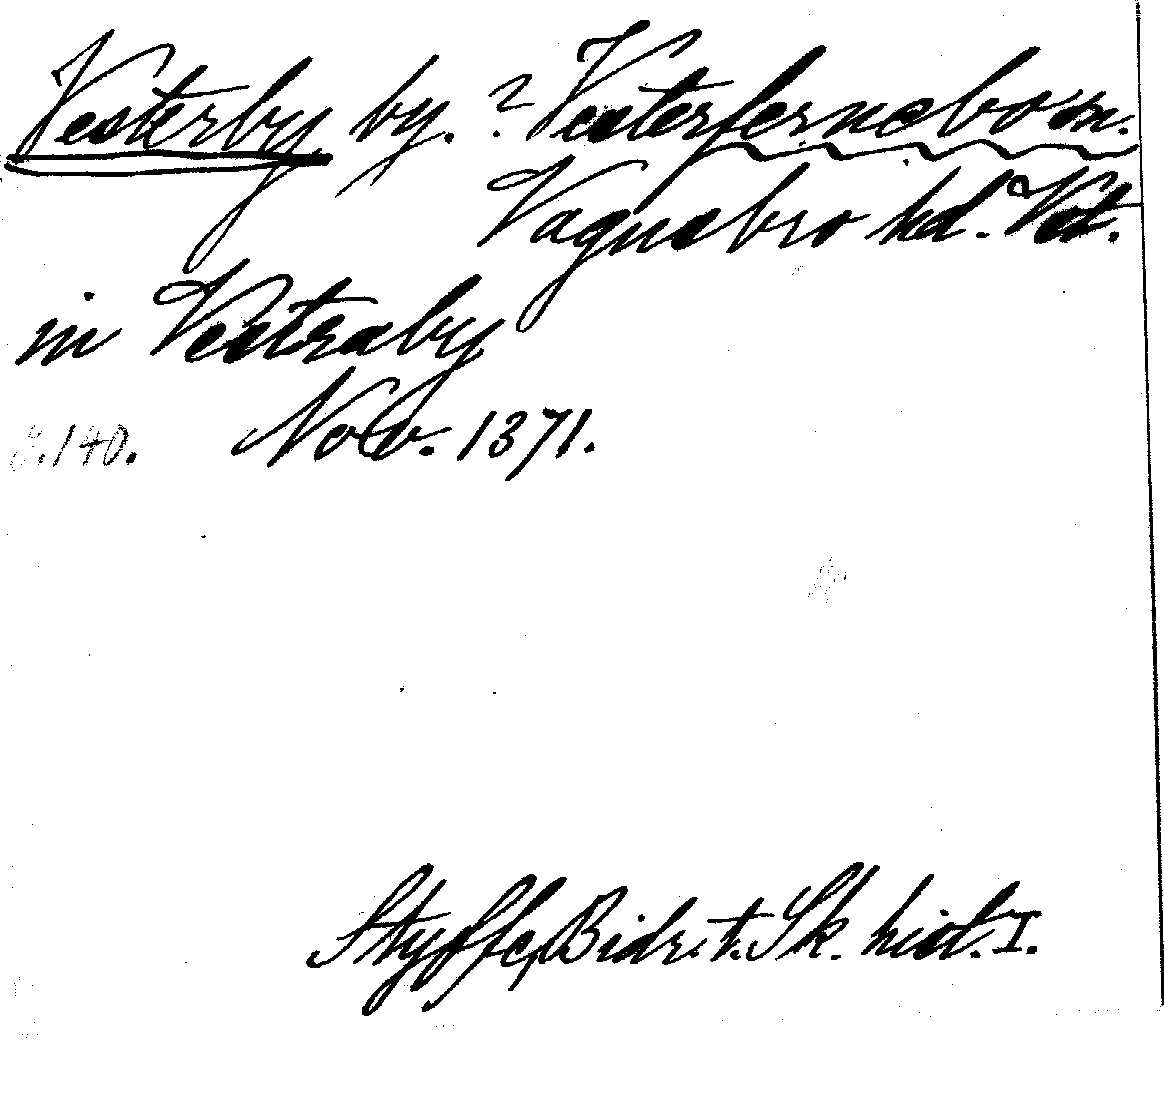 Vesterby by. ? Vesterfernebo sn.
Vagnsbro hd. Vstm.
in Vestraby
S. 140. Nov. 1371.
Styffe, Bidr. t. Sk. hist. I.